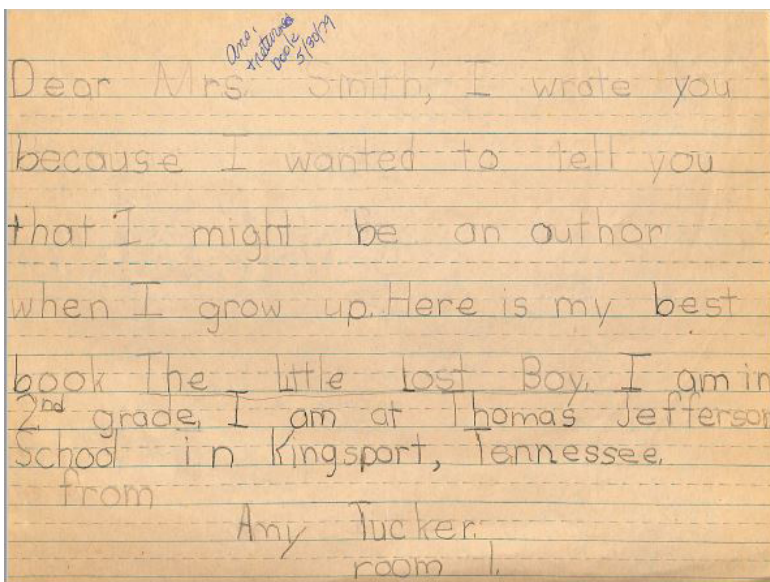 ans.
+ returned
book
5/30/79
Dear Mrs. Smith, I wrote you
because I wanted to tell you
that I might be an author
when I grow up. Here is my best
book The Little Lost Boy. I am in
2nd grade. I am at Thomas Jefferson
School in Kingsport, Tennessee.
from
Amy Tucker.
room 1.